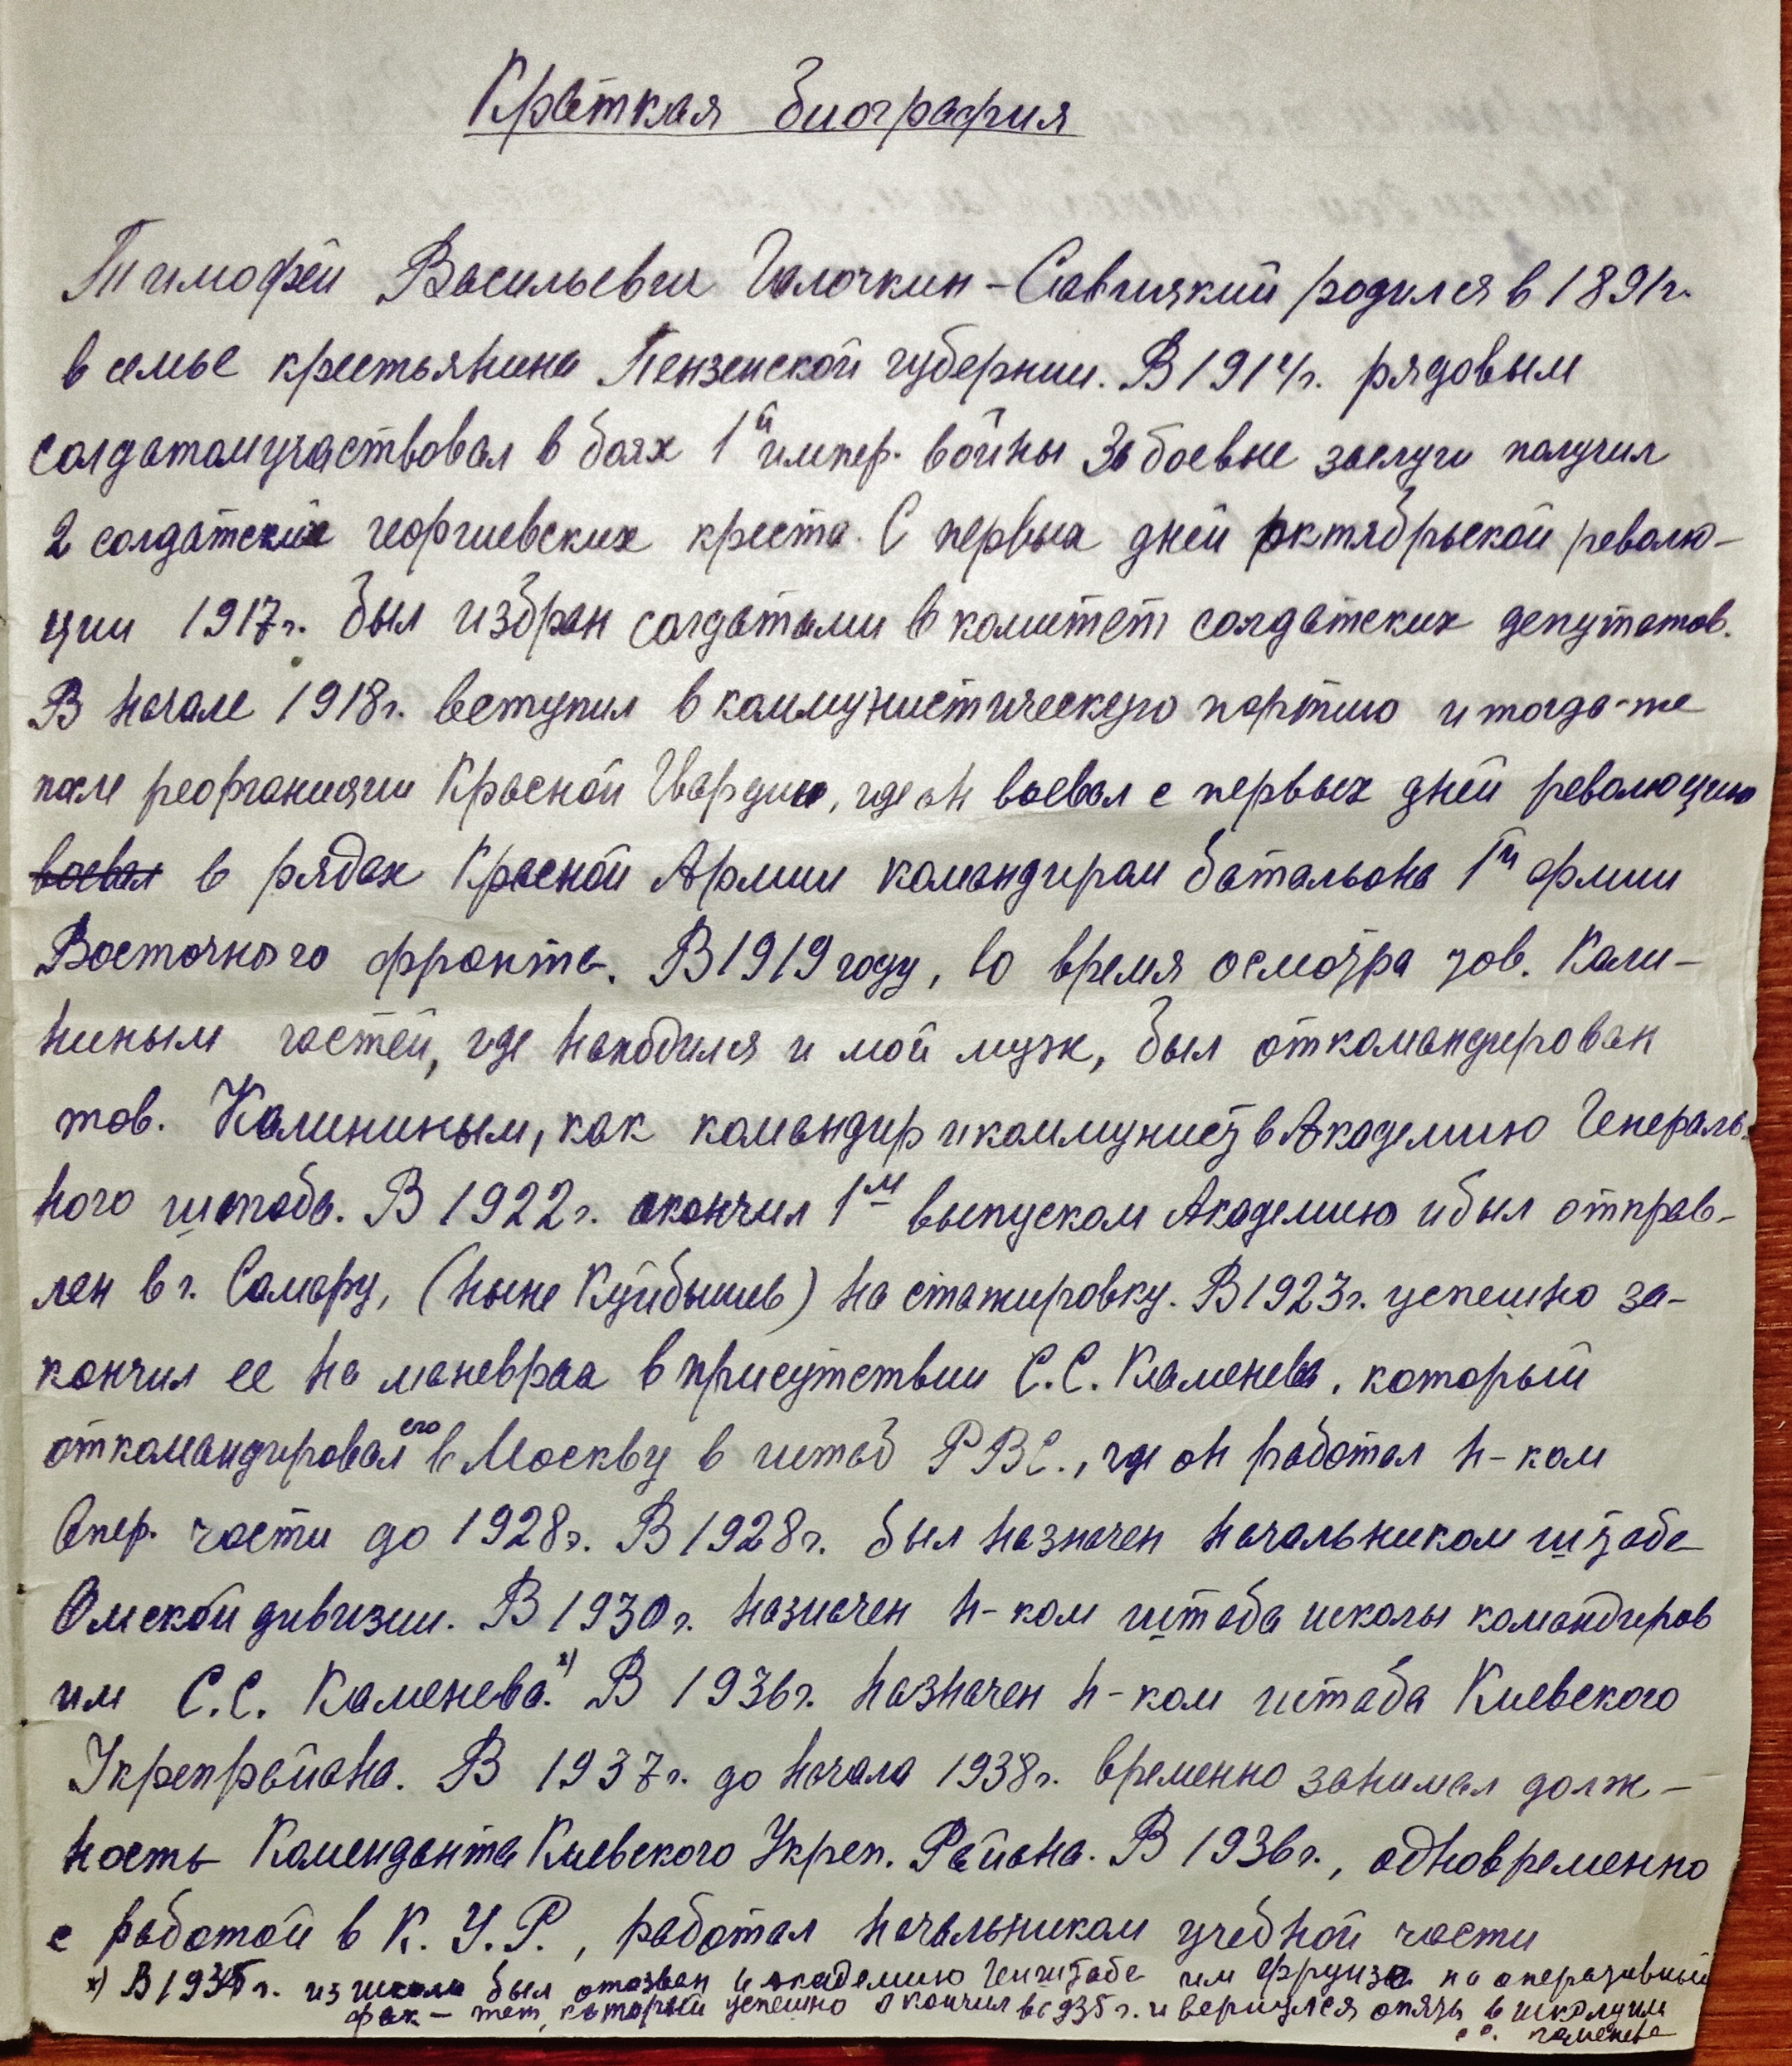 Краткая биография
Тимофей Васильевич Галочкин-Савицкий родился в 1891г.
в семье крестьянина Пензенской губернии. В 1914г. рядовым
солдатом участвовал в боях 1й импер. войны За боевые заслуги получил
2 солдатских георгиевских креста. С первых дней октябрьской револю-
ции 1917г. был избран солдатами в комитет солдатских депутатов.
В начале 1918г. вступил в коммунистическую партию и тогда-же
после реорганизации Красной Гвардии, где он воевал с первых дней революции
воевал в рядах Красной Армии командиром батальона 1й армии
Восточного фронта. В 1919 году, во время осмотра тов. Кали-
ниным частей, где находился и мой муж, был откомандирован
тов. Калининым, как командир и коммунист в Академию Генераль-
ного штаба. В 1922г. окончил 1м выпуском Академию и был отправ-
лен в г. Самару, (ныне Куйбышев) на стажировку. В 1923г. успешно за-
кончил ее на маневрах в присутствии С.С. Каменева, который
откомандировал его в Москву в штаб РВС., где он работал н-ком
Опер. части до 1928г. В 1928г. был назначен начальником штаба
Омской дивизии. В 1930г. назначен н-ком штаба школы командиров
им С.С. Каменева.х) В 1936г. назначен н-ком штаба Киевского
Укрепрайона. В 1937г. до начала 1938г. временно занимал долж-
ность Коменданта Киевского Укреп. Района. В 1936г., одновременно
с работой в К. У. Р., работал начальником учебной части
х) В г. из школы был отозван в академию Генштаба им Фрунзе на оперативный
фак-тет, который успешно окончил в 1935г. и вернулся опять в школу им
с.с. Каменева